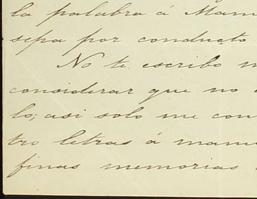 la palabra á Mam
sepa por conducto
No te escribo m
considerar que no
lo; asi solo me con
tro letras á mam
finas memorias